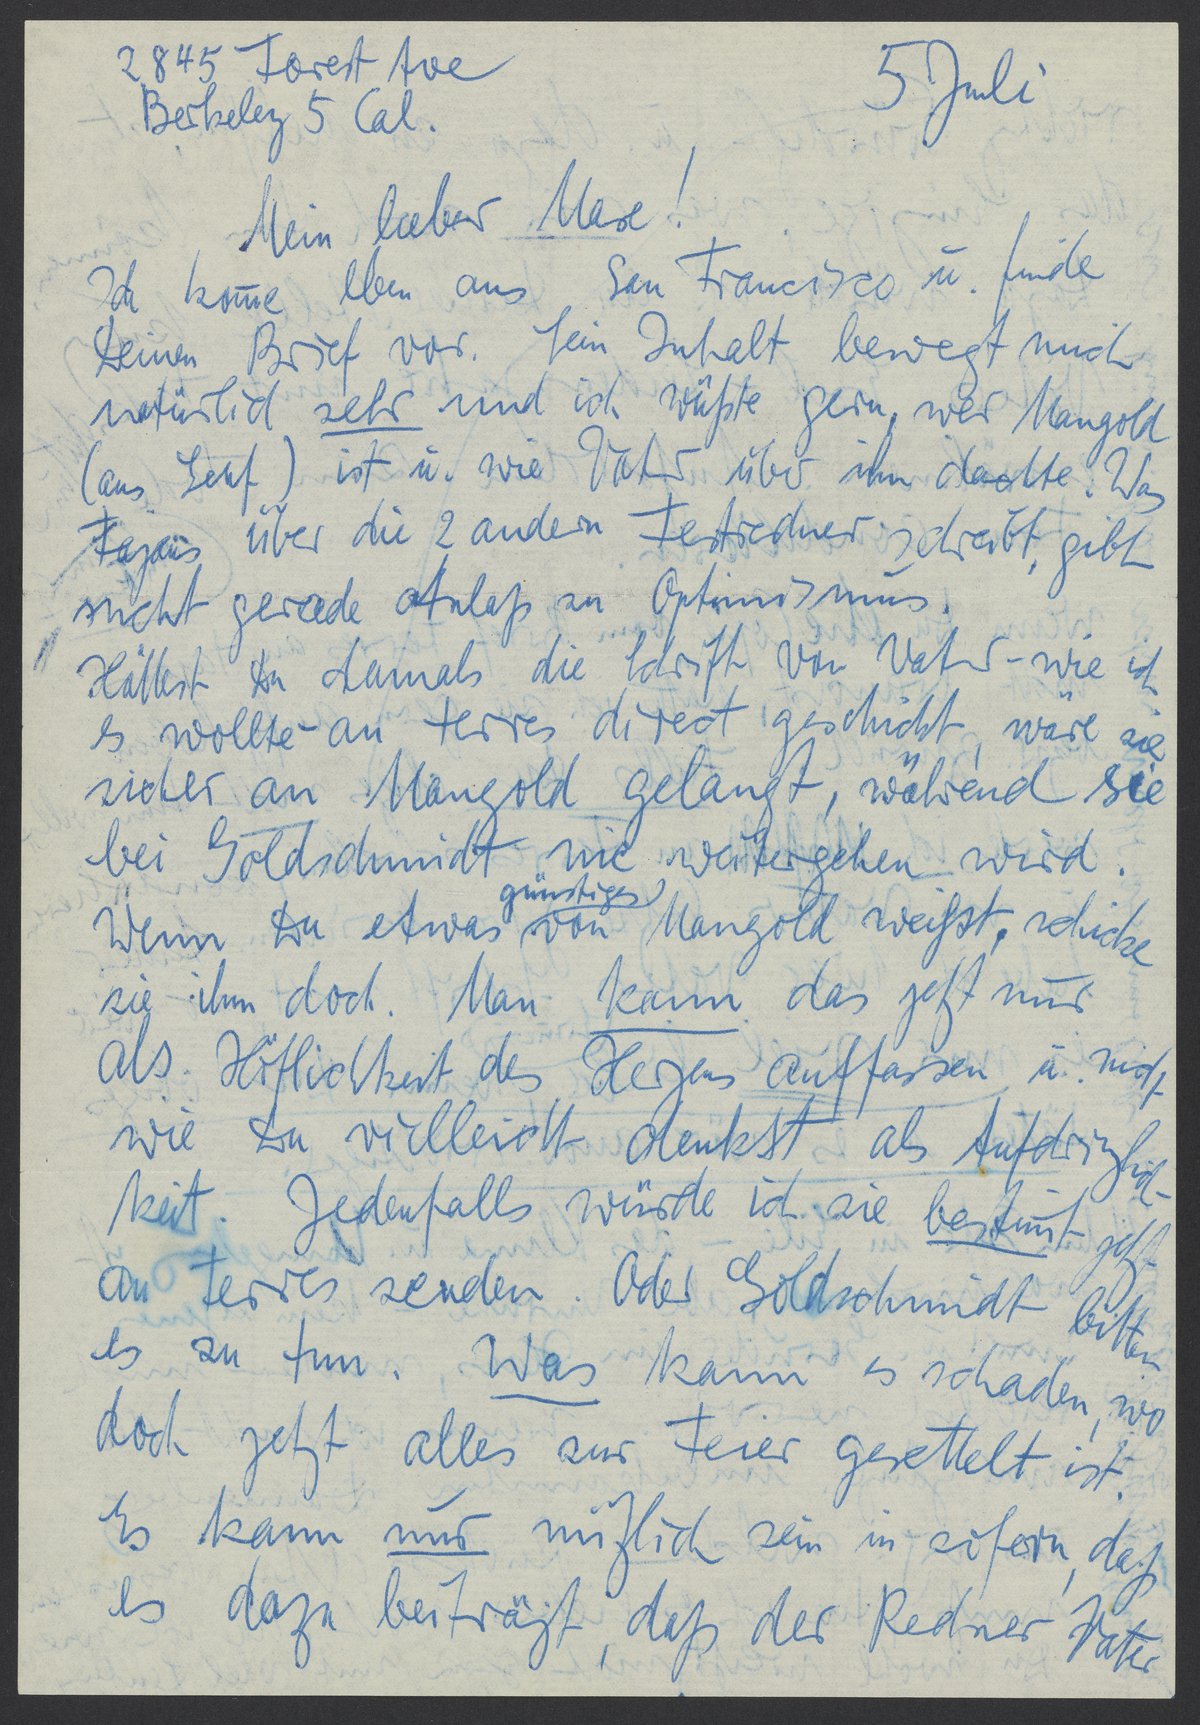 2845 Forest Ave
5 Juli
Berkeley 5 Cal.
Mein lieber Maxe!
Ich kom̄e eben aus San Francisco u. finde
Deinen Brief vor. Sein Inhalt bewegt mich
natürlich sehr und ich wüßte gern, wer Mangold
(aus Genf) ist u. wie Vater über ihn dachte. Was
Fajans über die 2 andern Festredner schreibt, gibt
nicht gerade Anlaß zu Optimismus.
Hättest Du damals die Schrift von Vater - wie ich
es wollte - an Terres direct geschickt, wäre sie
sicher an Mangold gelangt, während sie
bei Goldschmidt nie weitergehen wird.
Wenn Du etwas günstiges von Mangold weißt, schicke
sie ihm doch. Man kann das jetzt nur
als Höflichkeit des Herzens auffassen u. nicht
wie Du vielleicht denkst als Aufdringlich-
keit. Jedenfalls würde ich sie bestim̄t jetzt
an Terres senden. Oder Goldschmidt bitten
es zu tun. Was kann es schaden, wo
doch jetzt alles zur Feier gesettelt ist.
Es kann nur nützlich sein in sofern, daß
es dazu beiträgt, daß der Redner Vater